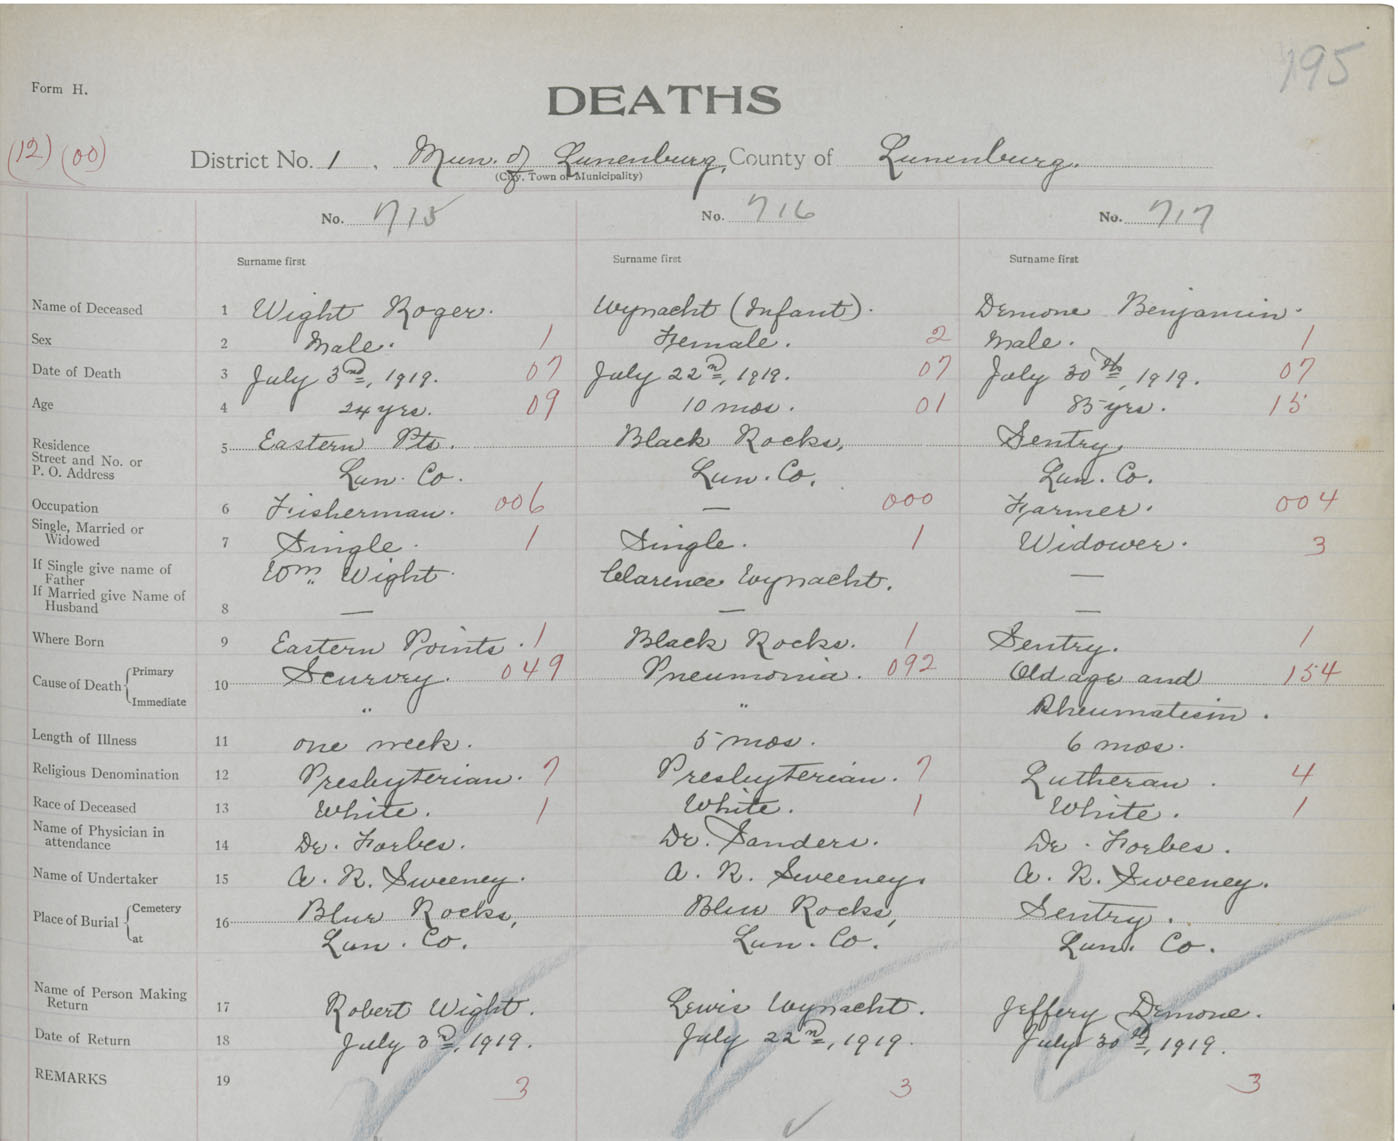 195
Form H.
DEATHS
(12) (00) District No. 1. Mun. of Lunenburg, County of Lunenburg.
(City, Town or Municipality)
No. 715 No. 716 No. 717
Surname first Surname first Surname first
Name of Deceased 1 Wight Roger. Wynacht (Infant). Demone Benjamin.
Sex 2 Male. 1 Female. 2 Male. 1
Date of Death 3 July 3rd, 1919. 07 July 22nd, 1919. 07 July 30th, 1919. 07
Age 4 24 yrs. 09 10 mos. 01 85 yrs. 15
Residence
Street and No. or
P. O. Address 5 Eastern Pts. Black Rocks, Sentry,
Lun. Co. Lun. Co. Lun. Co.
Occupation 6 Fisherman. 006 — 000 Farmer. 004
Single, Married or
Widowed 7 Single. 1 Single. 1 Widower. 3
If Single give name of
Father Wm Wight. Clarence Wynacht. —
If Married give Name of
Husband 8 — — —
Where Born 9 Eastern Points. 1 Black Rocks. 1 Sentry. 1
Cause of Death Primary 10 Scurvey. 049 Pneumonia. 092 Old age and 154
Immediate " " Rheumatism.
Length of Illness 11 one week. 5 mos. 6 mos.
Religious Denomination 12 Presbyterian. 7 Presbyterian. 7 Lutheran. 4
Race of Deceased 13 White. 1 White. 1 White. 1
Name of Physician in
attendance 14 Dr. Forbes. Dr. Sanders. Dr. Forbes.
Name of Undertaker 15 A. R. Sweeney. A. R. Sweeney. A. R. Sweeney.
Place of Burial Cemetery 16 Blue Rocks, Blue Rocks, Sentry.
at Lun. Co. Lun. Co. Lun. Co.
Name of Person Making
Return 17 Robert Wight. Lewis Wynacht. Jeffery Demone.
Date of Return 18 July 3rd, 1919. July 22nd, 1919. July 30th, 1919.
REMARKS 19 3 3 3